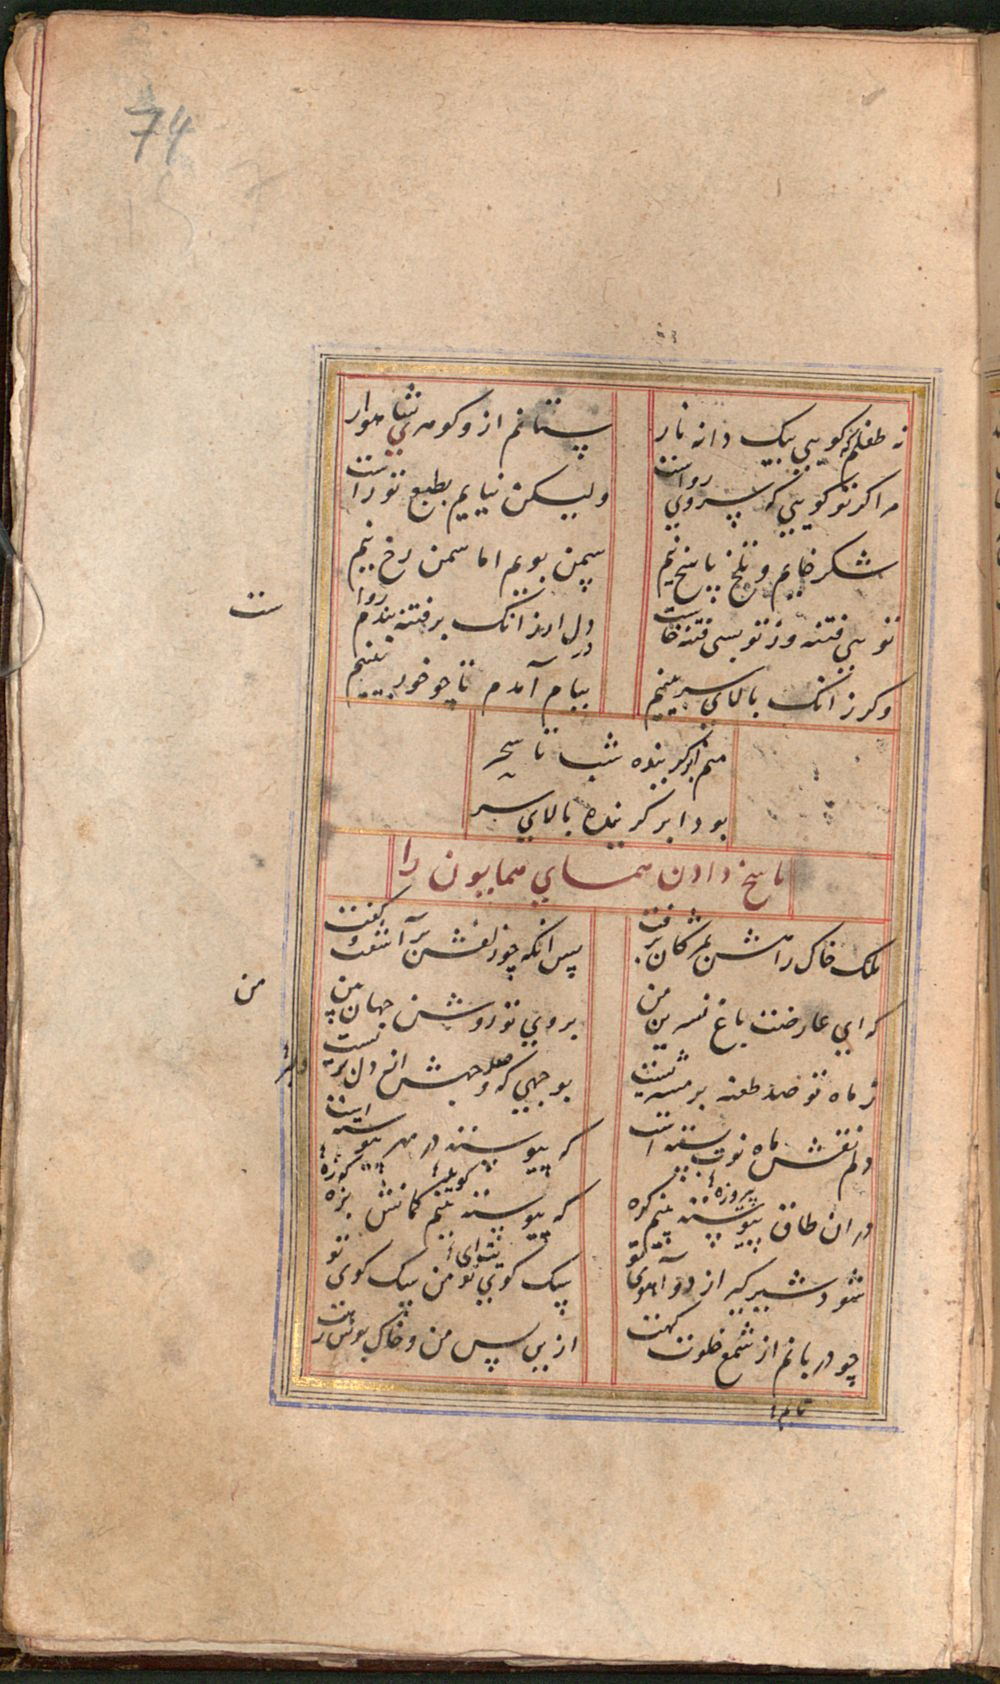 74
نه طفلم که کویی بیک دانه نار
پستانم از و کوهر شاهوار
مرا کر تو کویی که سروی رواست
ولیکن نیایم بطبع تو راست
شکر خایم و تلخ پاسخ نیم
سمن بویم اما سمن رخ نیم
تویی فتنه وز تو بسی فتنه خاست
دل ارزانک بر فتنه بندم رواست
وکر زانک بالای سر بینیم
ببام آمدم تا چو خور بینیم
منم ابر کرینده شب تا سحر
بود ابر کرینده بالای سر
پاسخ دادن همای همایون را
ملک خاک راهش بمژکان برفت
پس انکه چو زلفش برآشفت و کفت
که ای عارضت باغ نسرین من
بروی تو روشن جهان بین من
ز ماه تو صد طعنه بر مشتریست
بوجهی که وجهش از دلبریست
دلم نقش ماه نوت بسته است
که پیوسته در مهر پیوسته است
در ان طاق پیوسته بینم کره
که پیوسته بینم کمانش بزه
پیروزه
کویی
کوزه
شود شیر کیر از دو آهوی تو
سک کوی تو من سک کوی تو
چو دربانم از شمع خلوت کهت
ازین پس من و خاک بوس رهت
ست
من